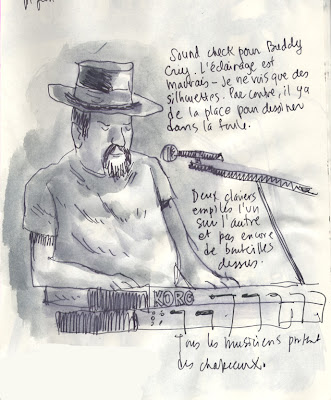 Sound check pour Buddy
Guy. L'éclairage est
mauvais – je ne vois que des
silhouettes. Par contre, il y a
de la place pour dessiner
dans la foule.
Deux claviers
empilés l'un
sur l'autre
et pas encore
de bouteilles
dessus.
KORG
Tous les musiciens portent
des chapeaux.